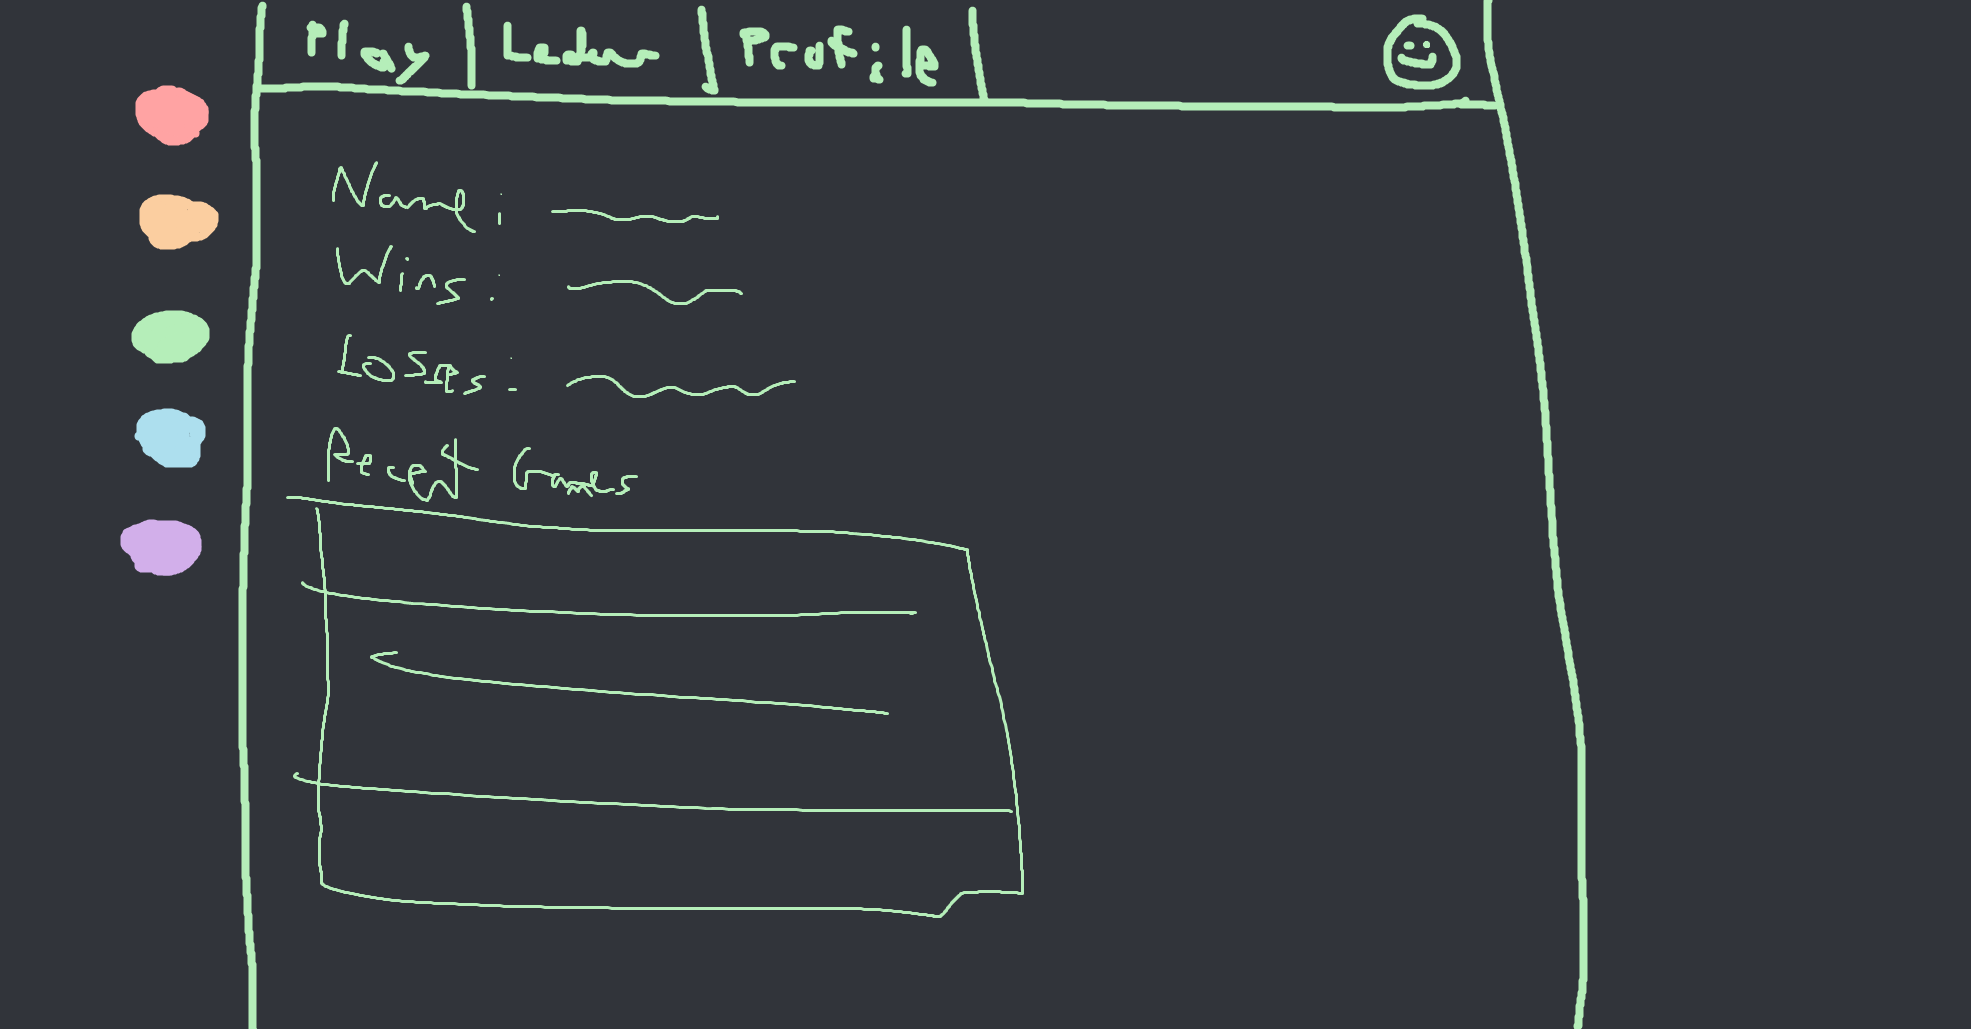 Play Leader Profile
Name:
Wins:
Losses:
Recent Games